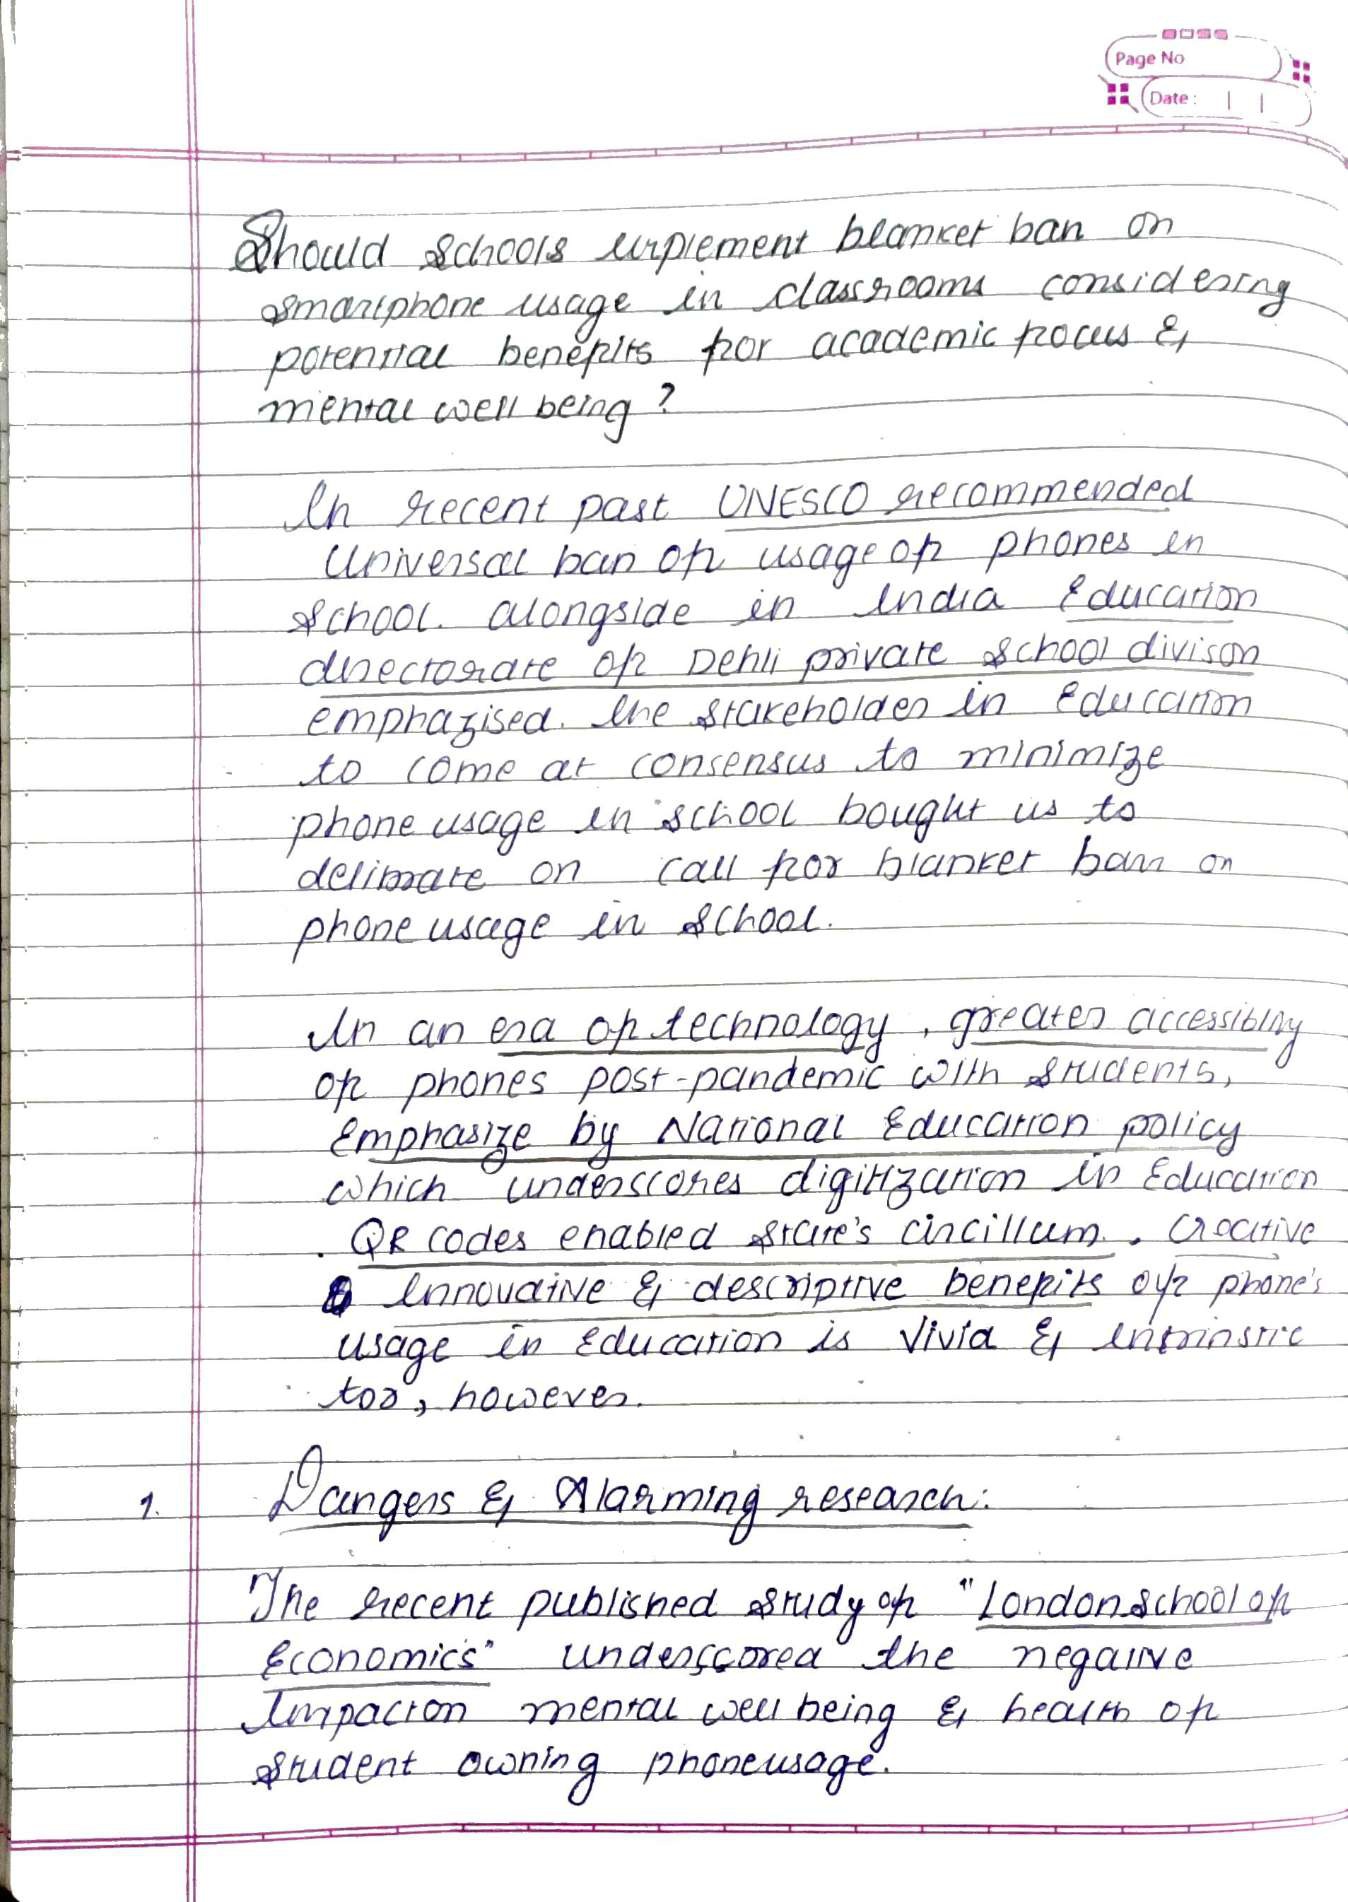 Page No
Date :
Should schools implement blanket ban on
smartphone usage in classrooms considering
potential benefits for academic focus &
mental well being ?
In recent past UNESCO recommended
Universal ban of usage of phones in
school. alongside in India Education
directorate of Dehli private school divison
emphazised. the stakeholder in Education
to come at consensus to minimize
phone usage in school bought us to
delibrate on call for blanket ban on
phone usage in school.
In an era of technology, greater accessiblity
of phones post-pandemic with students,
Emphasize by National Education policy
which underscores digitization in Education
. QR codes enabled state's circillum. , Creative
Innovative & descriptive benefits of phone's
usage in Education is vivid & intrinstic
too, however.
1. Dangers & Alarming research:
The recent published study of "London school of
Economics" underscored the negative
Impact on mental well being & health of
student owning phone usage.